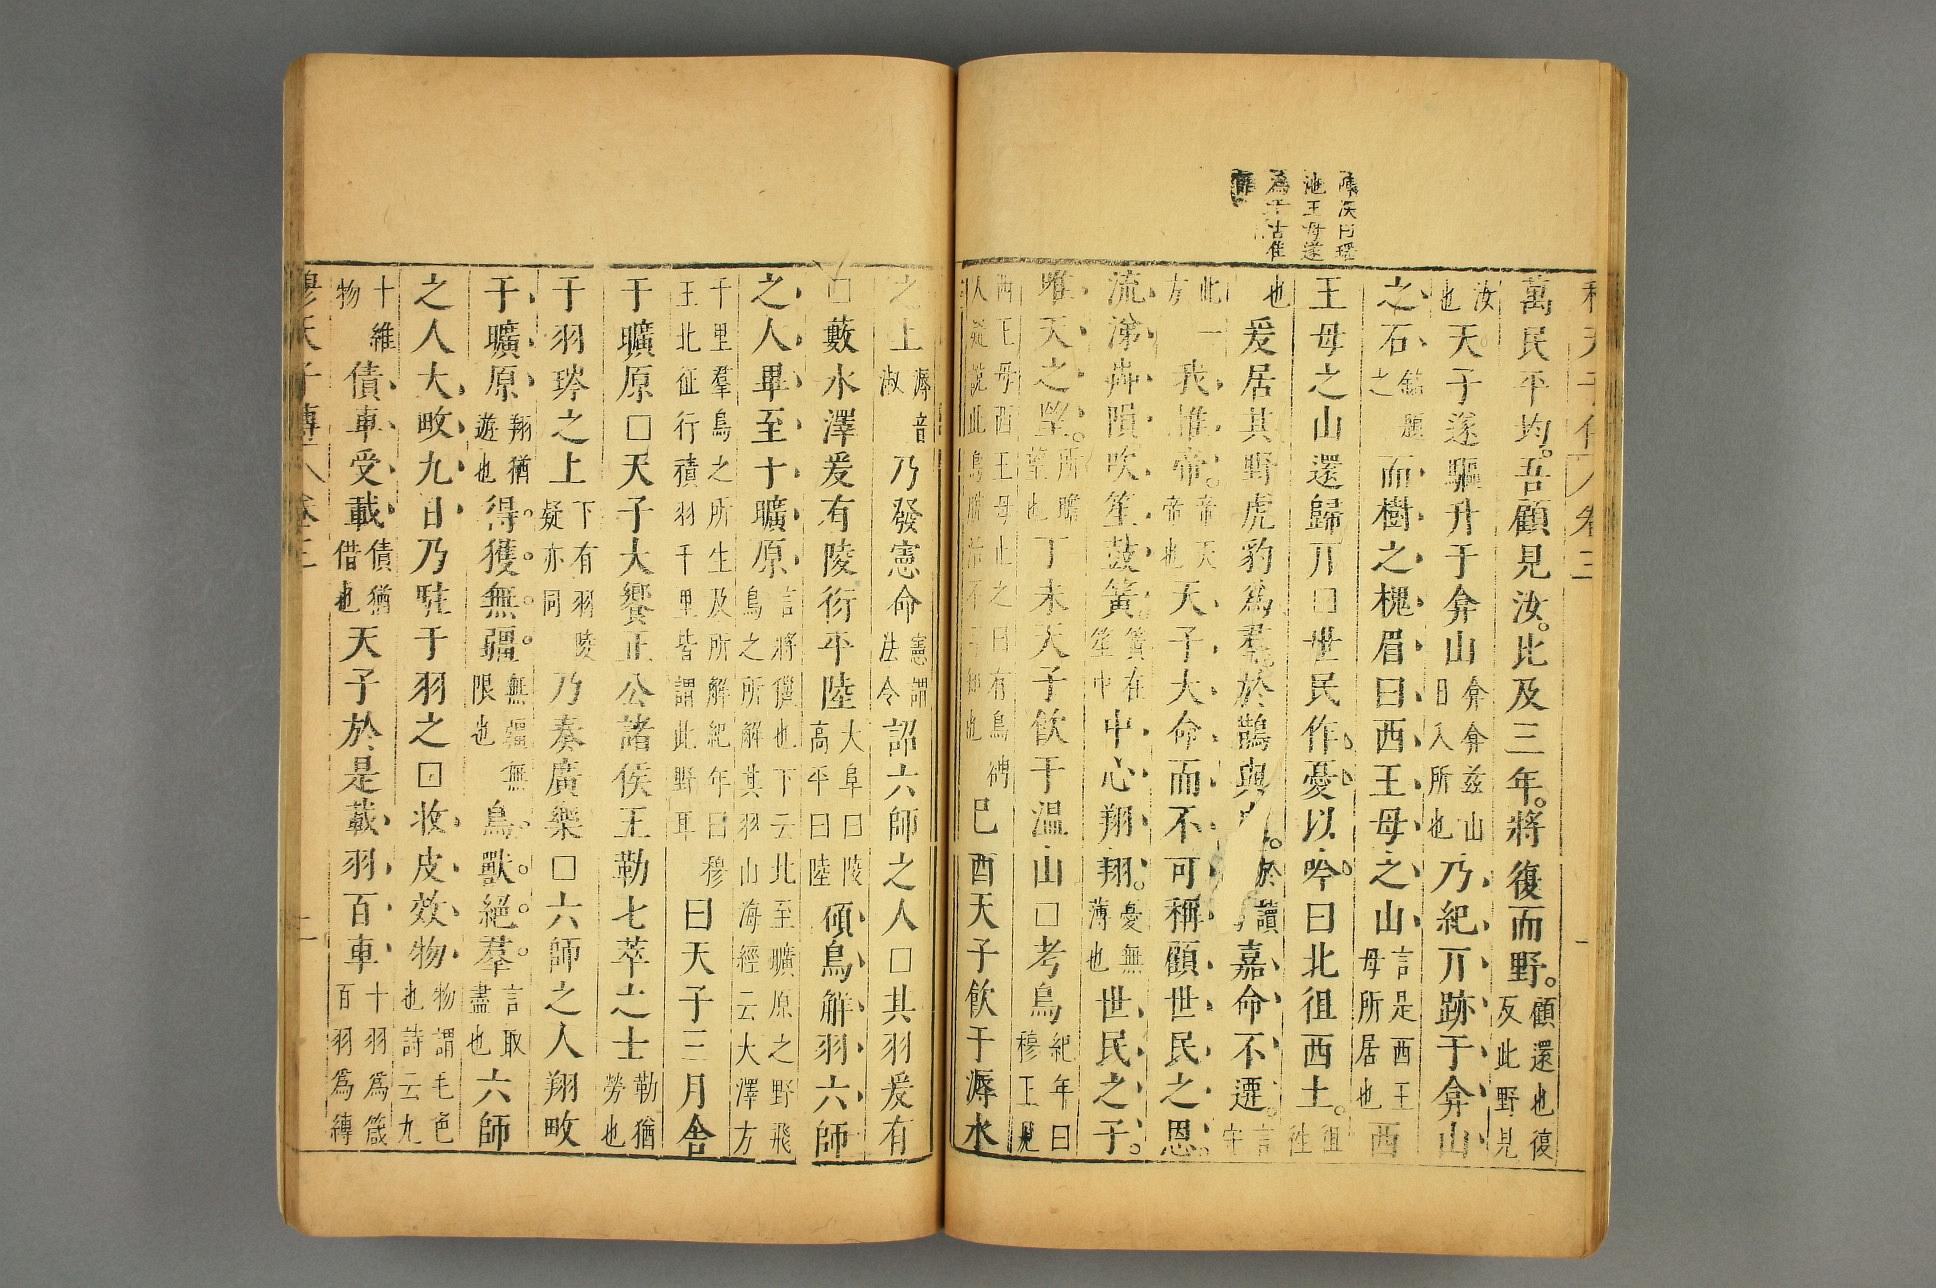 萬民平均。吾顧見汝。比及三年。將復而野。顧還也復反此野見
汝也天子遂驅升于弇山弇弇茲山日入所也乃紀丌跡于弇山
之石銘題之而樹之槐眉曰西王母之山言是西王母所居也西
王母之山還歸丌□世民作憂以吟曰北徂西土。徂往
也爰居其野虎豹爲羣於鵲與。於讀嘉命不遷。言守
此一方我惟帝。帝天帝也天子大命而不可稱顧世民之恩。
流涕㳠隕吹笙鼓簧簧在笙中中心翔翔。憂無薄也世民之子。
唯天之望。所瞻望也丁未天子飲于温山□考鳥紀年曰穆王見
西王母西王母止之曰有鳥人疑說此鳥也已酉天子飲于溽水
之上溽音淑乃發憲命憲謂法令詔六師之人□其羽爰有
□藪水澤爰有陵衍平陸大阜曰陵高平曰陸碩鳥解羽六師
之人畢至十曠原言將儛也下云北至曠原之野飛鳥之所解其羽山海經云大澤方
千里羣鳥之所生及所解紀年曰穆王北征行積羽千里皆謂此野耳曰天子三月舍
于曠原□天子大饗正公諸侯王勒七萃之士勒猶勞也
于羽琌之上下有羽陵疑亦同乃奏廣樂□六師之人翔畋
于曠原翔猶遊也得。獲。無。疆。無疆無限也鳥。獸。絕。羣。言取盡也六師
之人大畋九日乃駐于羽之□收皮效物物謂毛色也詩云九
十維物債車受載債猶借也天子於是載羽百車十羽爲箴百羽爲縳
穆天子傳 卷三 二